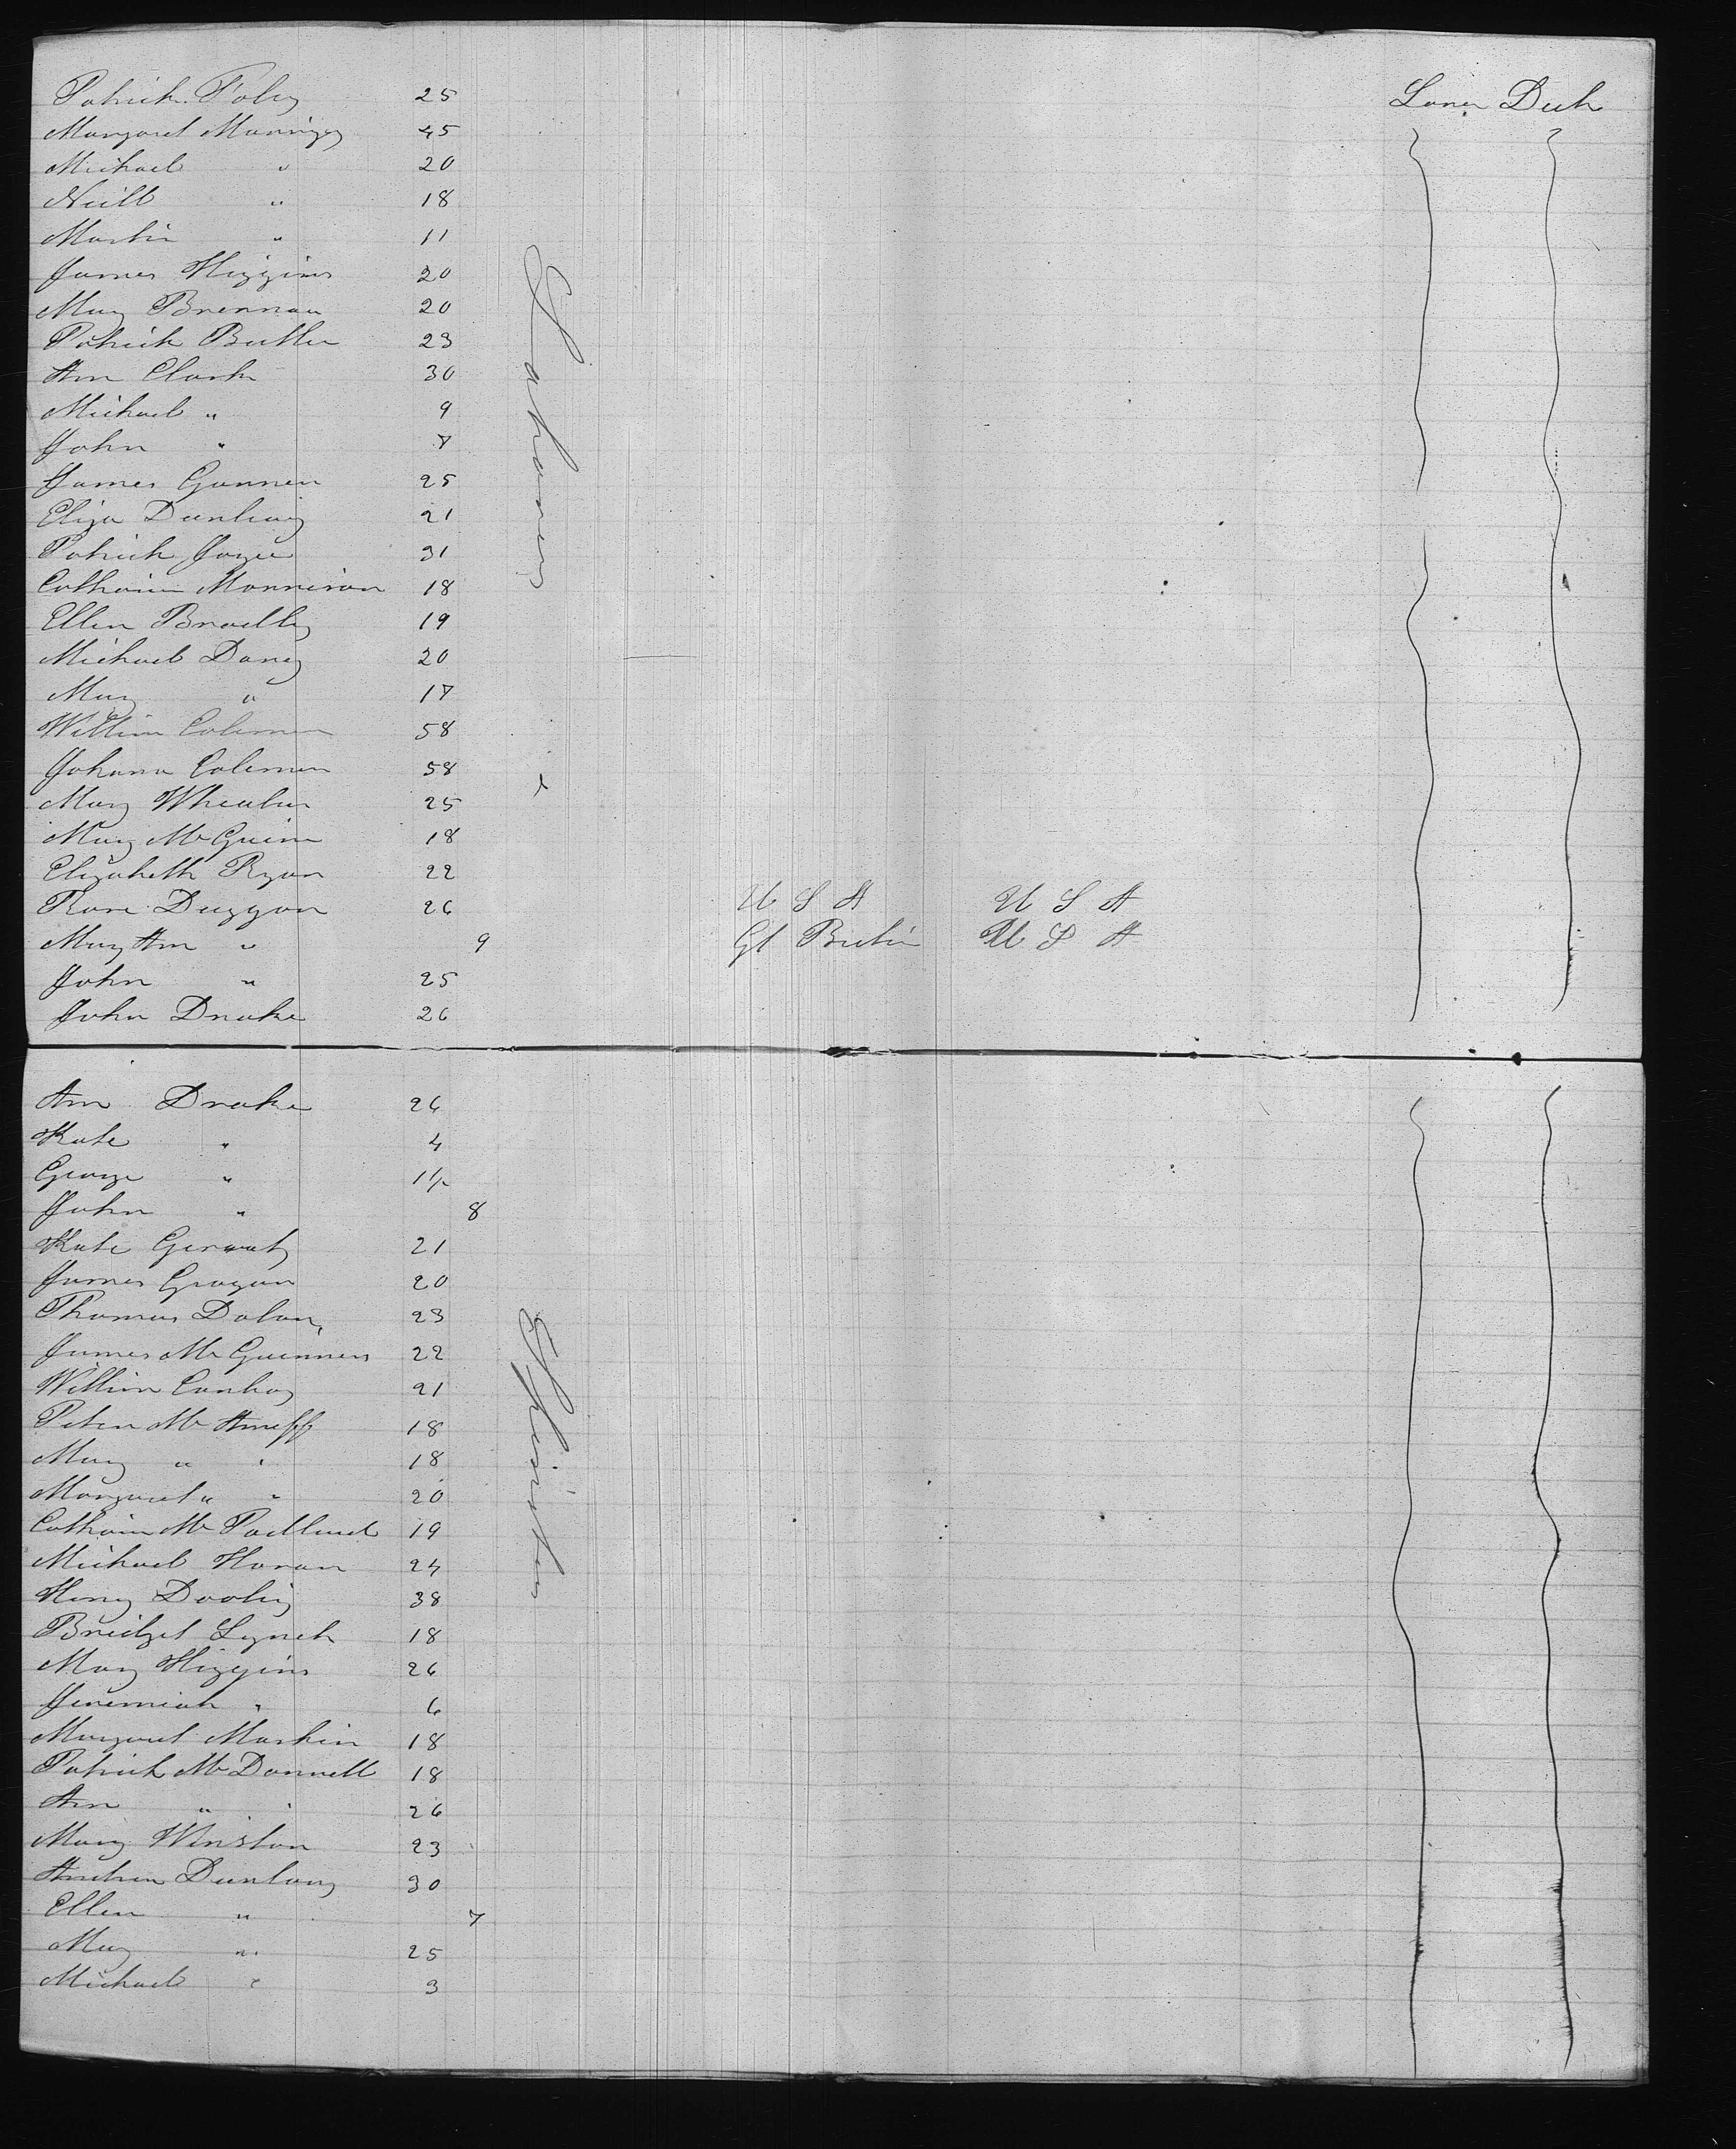 Patrick Foley 25 Lower Deck
Margaret 45
Michael " 20
Neill " 18
Martin " 11
James Higgins 20
Mary Brennan 20
Patrick Butler 23
Ann Clark 30
Michael " 9
John " 7
James Gannen 25
Eliza Dunleavy 21
Patrick Joyce 31
Catharine Morrison 18
Ellen Bradley 19
Michael Davey 20
Mary " 17
William Coleman 58
Johana Coleman 58
Mary Whealan 25
Mary McGuire 18
Elizabeth Ryan 22
Rose Duggan 26 U S A U S A
Mary Ann " 9 Gt Britain U S A
John " 25
John Drake 26
Labourers
Ann Drake 26
Kate " 4
George " 1½
John " 8
Kate Geraty 21
James Grogan 20
Thomas Dolan 23
James McGuinness 22
William Conboy 21
Peter Mc 18
Mary " " 18
Margaret " " 20
Catharin Mc 19
Michael Horan 24
Henry Dooley 38
Bridget Lynch 18
Mary Higgins 26
Jeremiah " 6
Margaret Martin 18
Patrick McDonnell 18
Ann " " 26
Mary Winston 23
Andrew Dunlavy 30
Ellen " 7
Mary " 25
Michael " 3
Spinsters